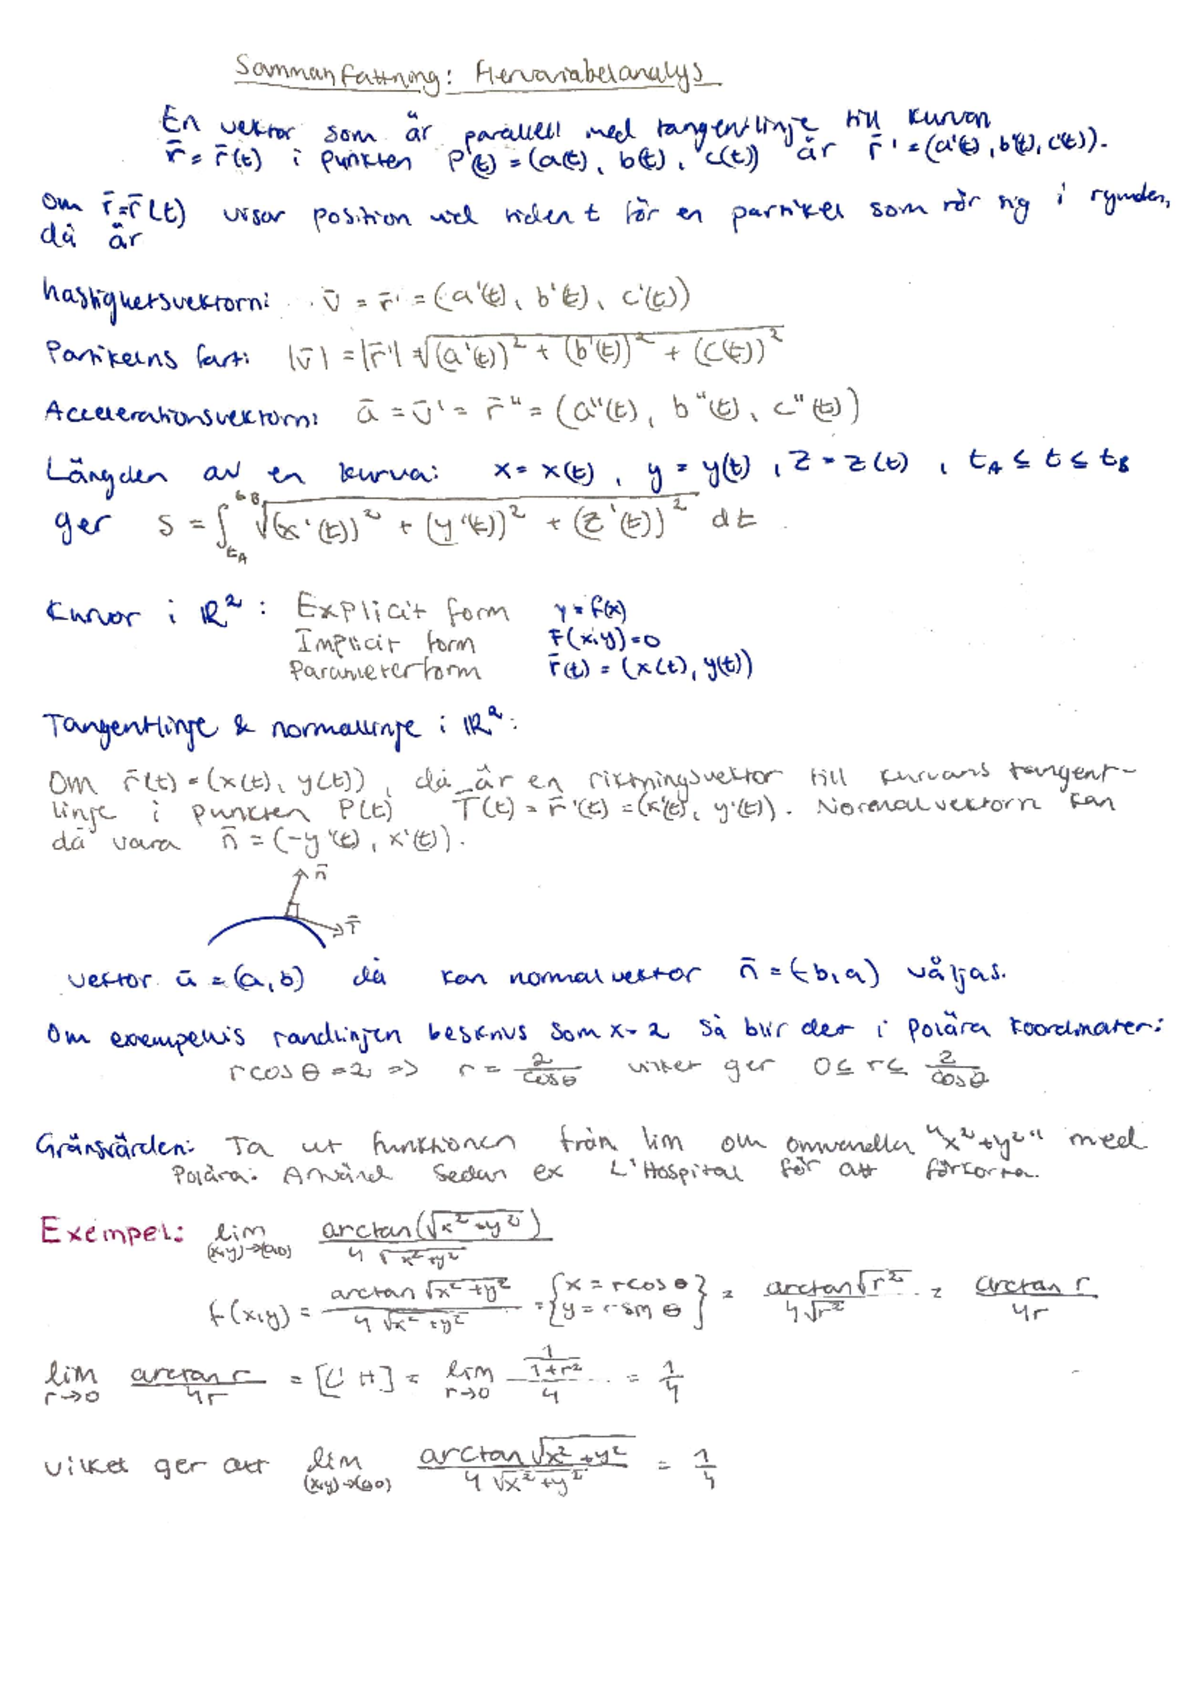 Sammanfattning: Flervariabelanalys
En vektor som är parallell med tangentlinje till kurvan
r̄ = r̄(t) i punkten P(t) = (a(t), b(t), c(t)) är r̄' = (a'(t), b'(t), c'(t)).
Om r̄=r̄(t) visar position vid tiden t för en partikel som rör sig i rymden,
då är
hastighetsvektorn: v̄ = r̄' = (a'(t), b'(t), c'(t))
Partikelns fart: |v̄| = |r̄'| = √((a'(t))² + (b'(t))² + (c'(t))²)
Accelerationsvektorn: ā = v̄' = r̄'' = (a''(t), b''(t), c''(t))
Längden av en kurva: x = x(t), y = y(t), z = z(t), t_A ≤ t ≤ t_B
ger s = ∫_{t_A}^{t_B} √((x'(t))² + (y'(t))² + (z'(t))²) dt
Kurvor i ℝ²: Explicit form y = f(x)
Implicit form F(x,y)=0
Parameterform r̄(t) = (x(t), y(t))
Tangentlinje & normallinje i ℝ²:
Om r̄(t) = (x(t), y(t)), då är en riktningsvektor till kurvans tangent-
linje i punkten P(t) T̄(t) = r̄'(t) = (x'(t), y'(t)). Normalvektorn kan
då vara n̄ = (-y'(t), x'(t)).
n̄
T̄
vektor ū = (a, b) då kan normalvektor n̄ = (-b, a) väljas.
Om exempelvis randlinjen beskrivs som x = 2 så blir det i polära koordinater:
r cos θ = 2 => r = 2/cos θ vilket ger 0 ≤ r ≤ 2/cos θ
Gränsvärden: Ta ut funktionen från lim om omvandla "x²+y²" med
Polära. Använd sedan ex L'Hospital för att förkorta.
Exempel: lim_{(x,y)→(0,0)} arctan(√(x²+y²)) / 4√(x²+y²)
f(x,y) = arctan √(x²+y²) / 4√(x²+y²) = {x = r cos θ, y = r sin θ} = arctan √r² / 4√r² = arctan r / 4r
lim_{r→0} arctan r / 4r = [L'H] = lim_{r→0} (1/(1+r²)) / 4 = 1/4
vilket ger att lim_{(x,y)→(0,0)} arctan √(x²+y²) / 4√(x²+y²) = 1/4